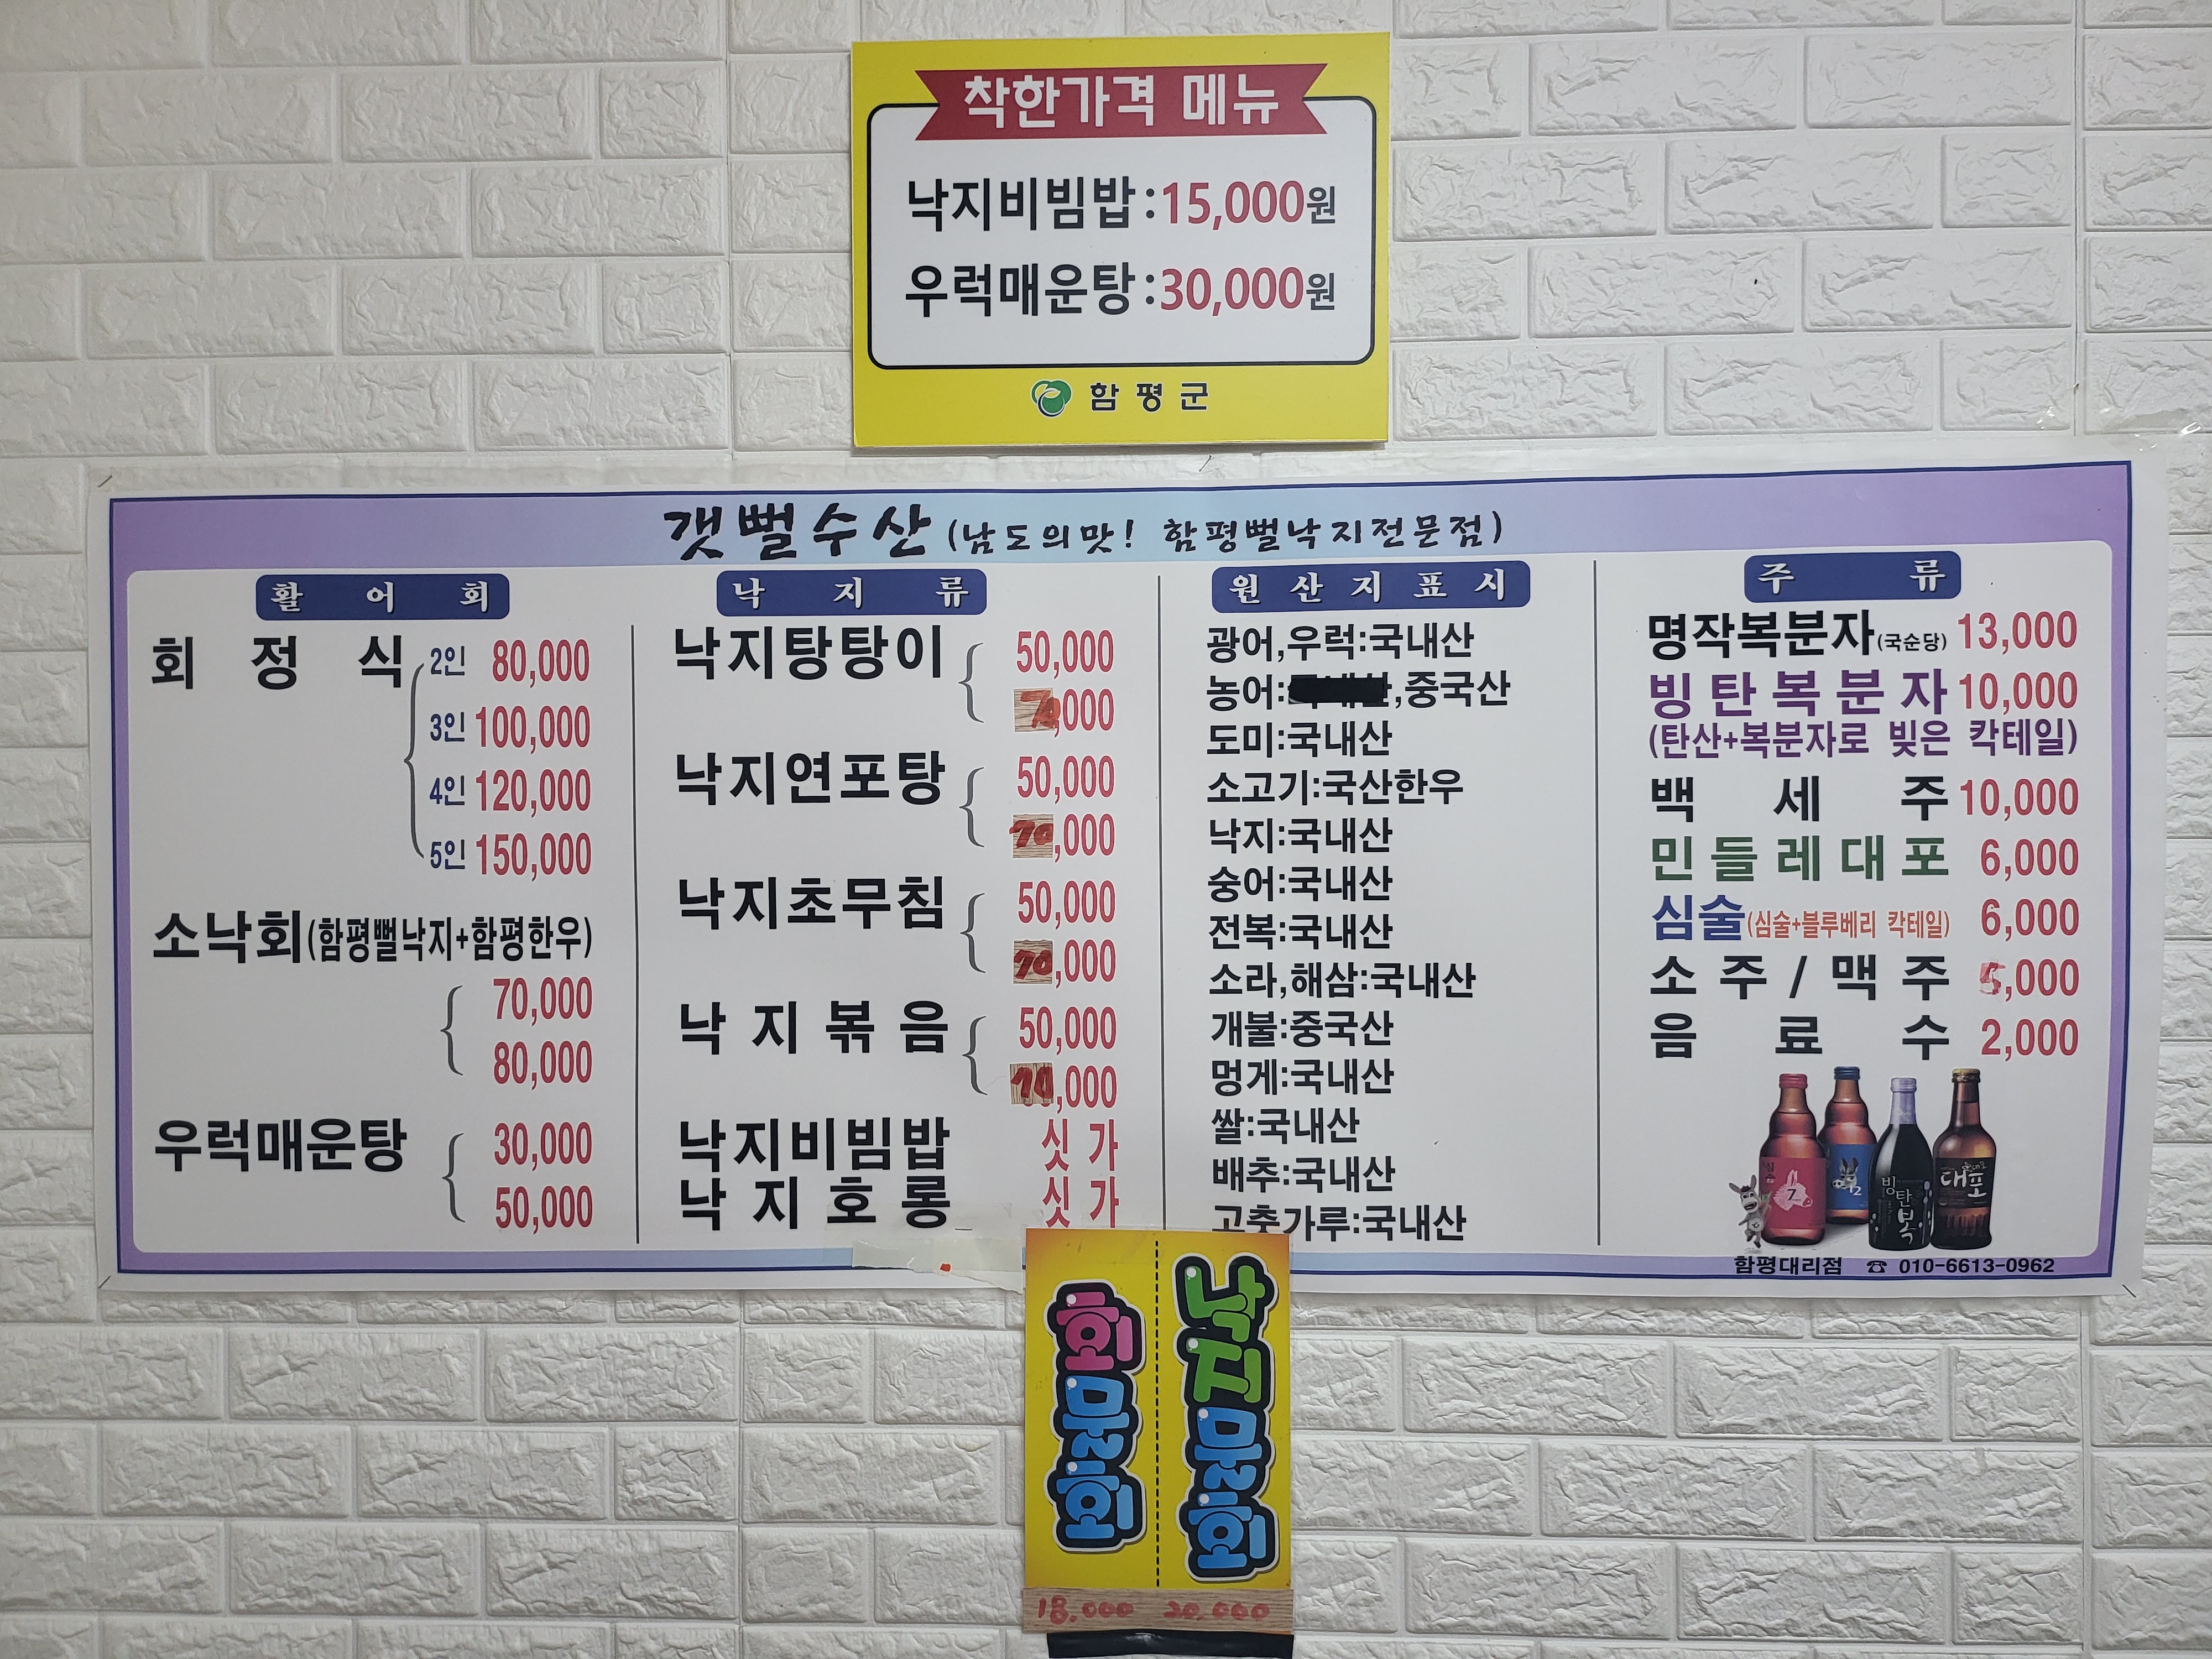 착한가격 메뉴
낙지비빔밥:15,000원
우럭매운탕:30,000원
함평군
갯뻘수산(남도의맛! 함평뻘낙지전문점)
활어회
회정식 2인 80,000
3인 100,000
4인 120,000
5인 150,000
소낙회(함평뻘낙지+함평한우)
70,000
80,000
우럭매운탕 30,000
50,000
낙지류
낙지탕탕이 50,000
70,000
낙지연포탕 50,000
70,000
낙지초무침 50,000
70,000
낙지볶음 50,000
70,000
낙지비빔밥 싯가
낙지호롱 싯가
원산지표시
광어,우럭:국내산
농어:,중국산
도미:국내산
소고기:국산한우
낙지:국내산
숭어:국내산
전복:국내산
소라,해삼:국내산
개불:중국산
멍게:국내산
쌀:국내산
배추:국내산
고춧가루:국내산
주류
명작복분자(국순당) 13,000
빙탄복분자 10,000
(탄산+복분자로 빚은 칵테일)
백세주 10,000
민들레대포 6,000
심술(심술+블루베리 칵테일) 6,000
소주/맥주 5,000
음료수 2,000
7
빙탄복
대포
함평대리점 ☎ 010-6613-0962
회말이회
낙지말이회
18,000 20,000